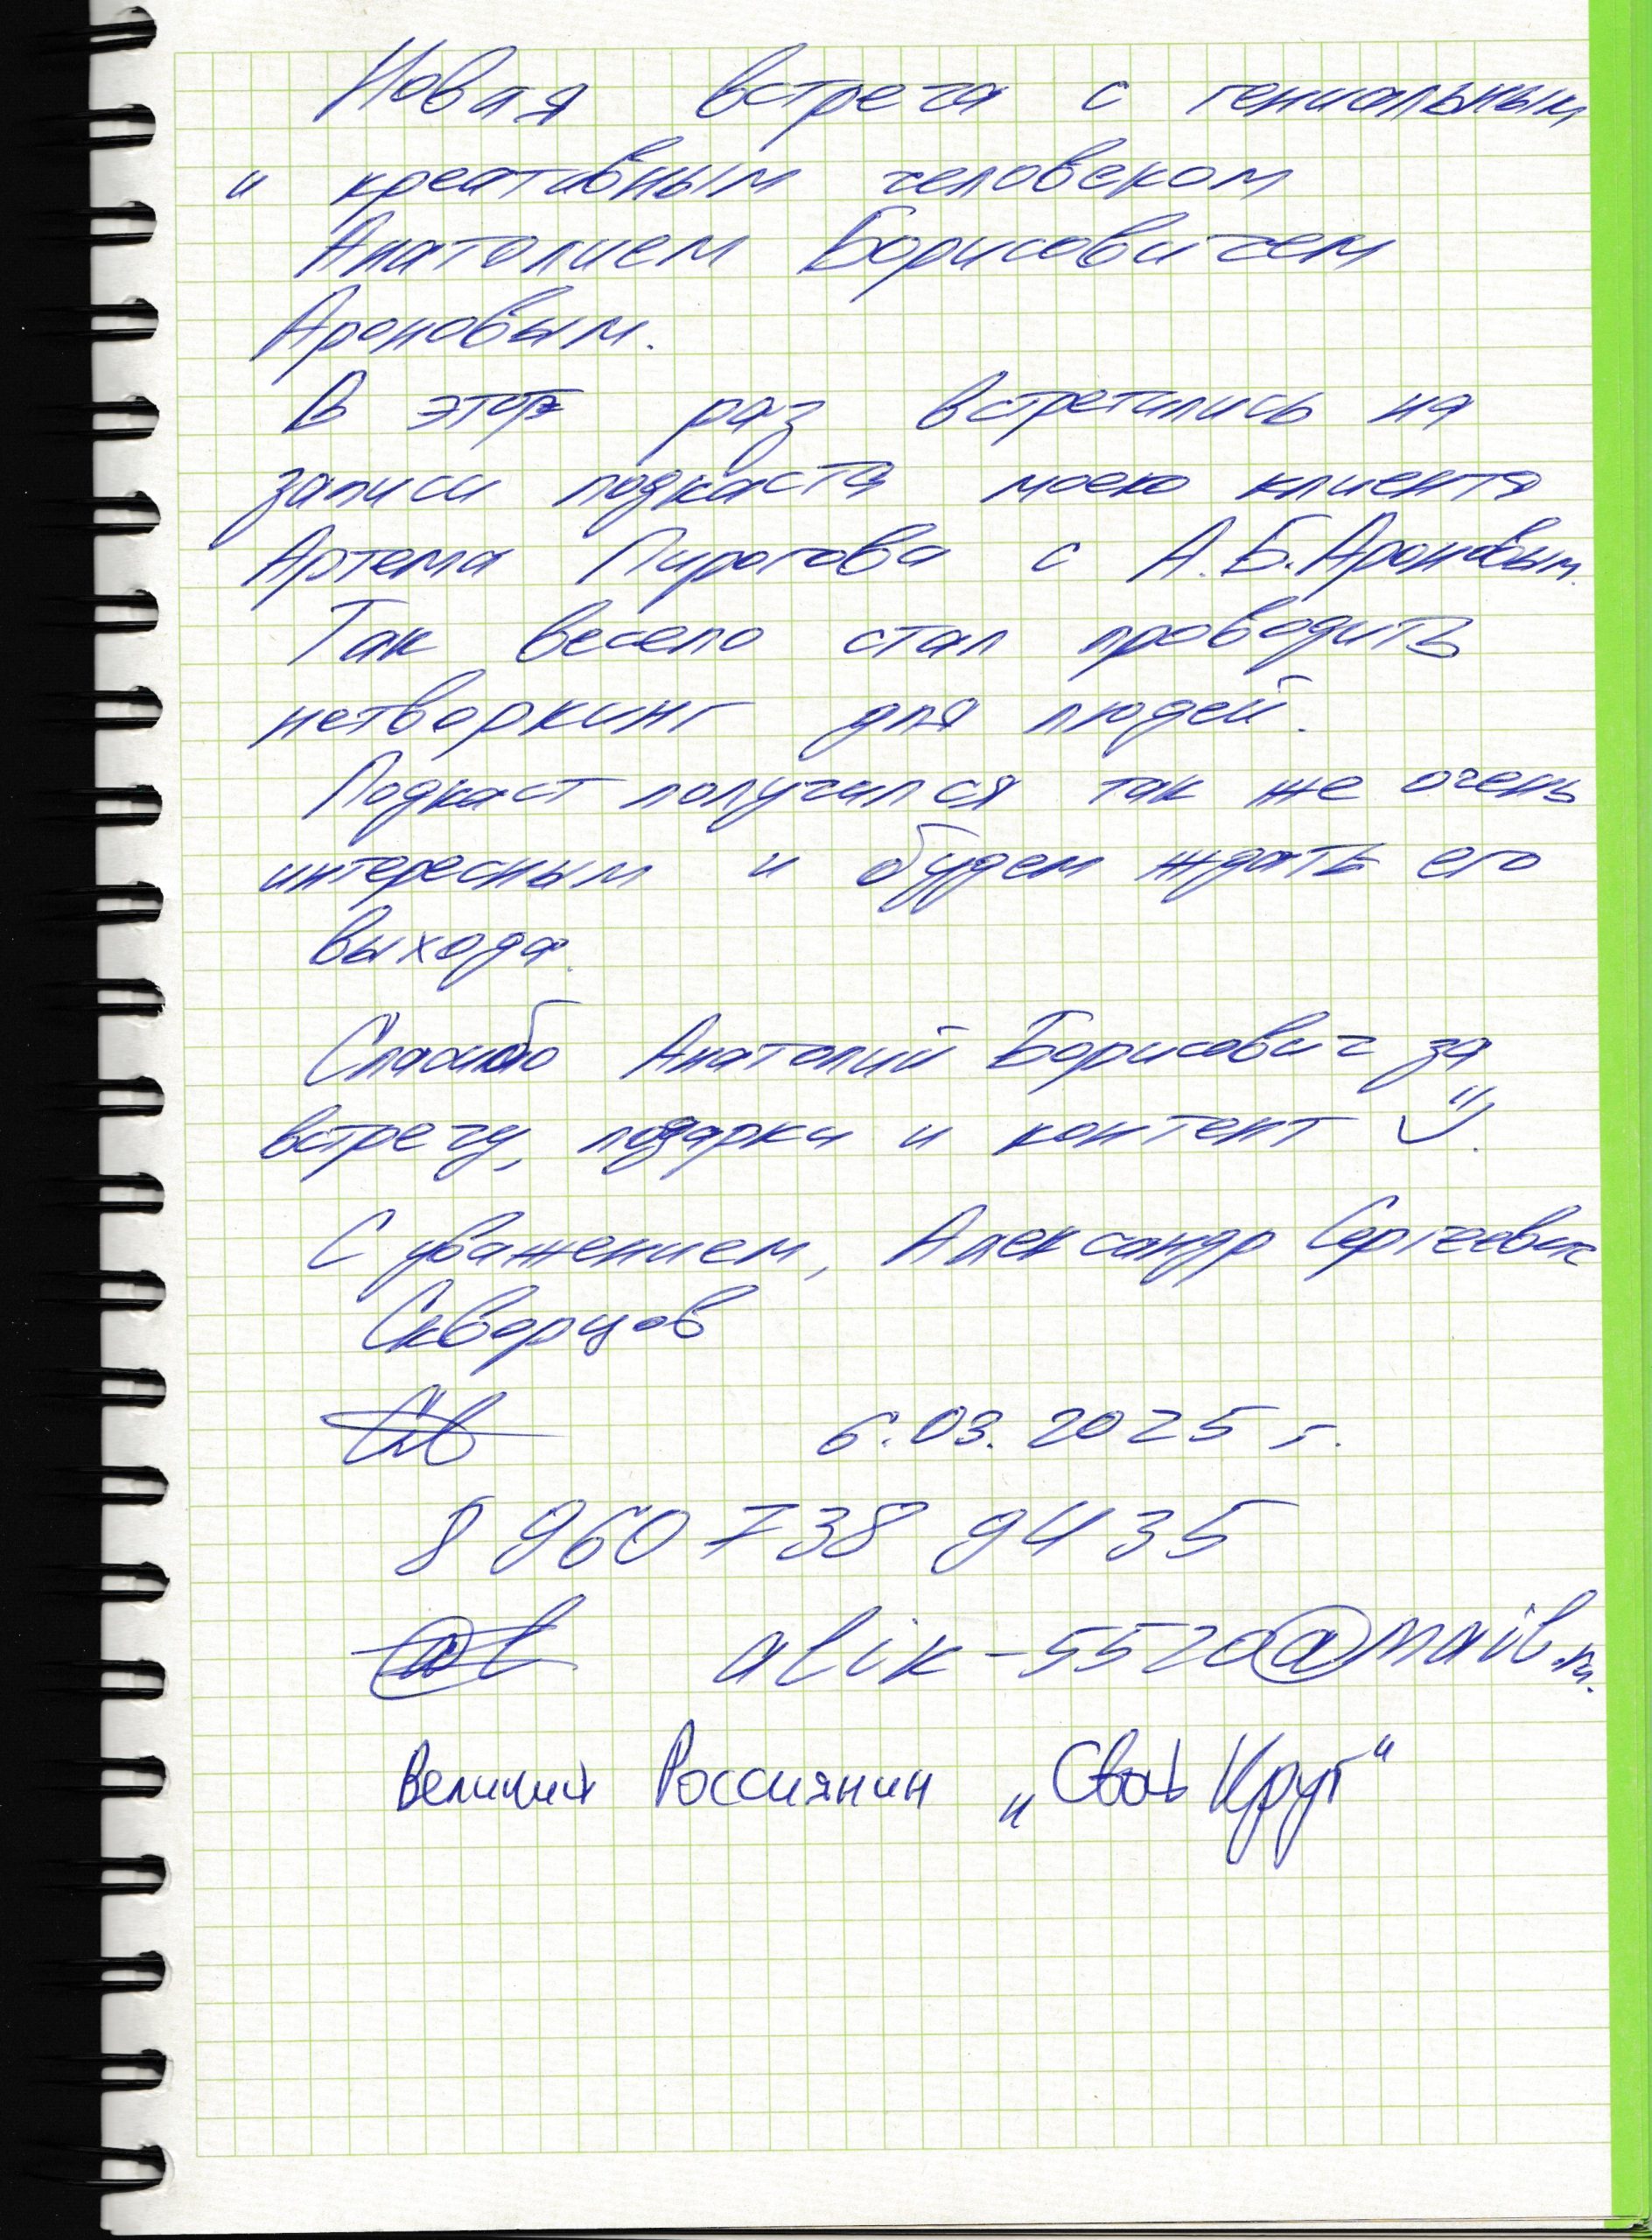 Новая встреча с гениальным
и креативным человеком
Анатолием Борисовичем
Ароновым.
В этот раз встретились на
записи подкаста моего клиента
Артема Пирогова с А.Б.Ароновым.
Так весело стал проводить
нетворкинг для людей.
Подкаст получился так же очень
интересным и будем ждать его
выхода.
Спасибо Анатолий Борисович за
встречу, подарки и контент
С уважением, Александр Сергеевич
Скворцов
6.03.2025 г.
8 960 738 9435
alik-5520@mail.ru.
Великий Россиянин „Свой Круг“